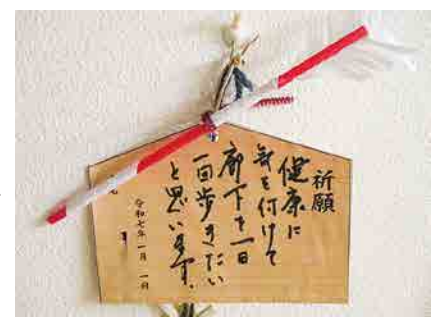 祈願
健康に
気を付けて
廊下を一日
一回歩きたい
と思います。
令和七年一月一日